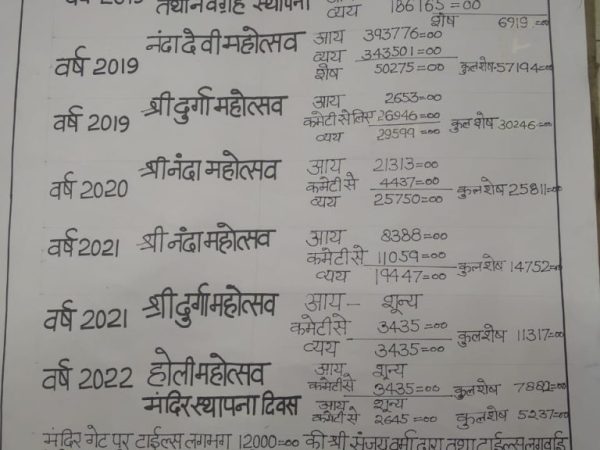 वर्ष 2019 तथा नवग्रह स्थापना व्यय 186165=00
शेष 6919=00
वर्ष 2019 नंदा देवी महोत्सव आय 393776=00
व्यय 343501=00
शेष 50275=00 कुल शेष-57194=00
वर्ष 2019 श्री दुर्गा महोत्सव आय 2653=00
कमेटी से लिए 26946=00 कुल शेष 30246=00
व्यय 29599=00
वर्ष 2020 श्री नंदा महोत्सव आय 21313=00
कमेटी से 4437=00 कुल शेष 25811=00
व्यय 25750=00
वर्ष 2021 श्री नंदा महोत्सव आय 8388=00
कमेटी से 11059=00 कुल शेष 14752=00
व्यय 19447=00
वर्ष 2021 श्री दुर्गा महोत्सव आय - शून्य
कमेटी से 3435=00 कुल शेष 11317=00
व्यय 3435=00
वर्ष 2022 होली महोत्सव आय शून्य
कमेटी से 3435=00 कुल शेष 7882=00
मंदिर स्थापना दिवस आय शून्य
कमेटी से 2645=00 कुल शेष 5237=00
मंदिर गेट पर टाईल्स लगभग 12000=00 की श्री संजय वर्मा द्वारा तथा टाईल्स लगवाई